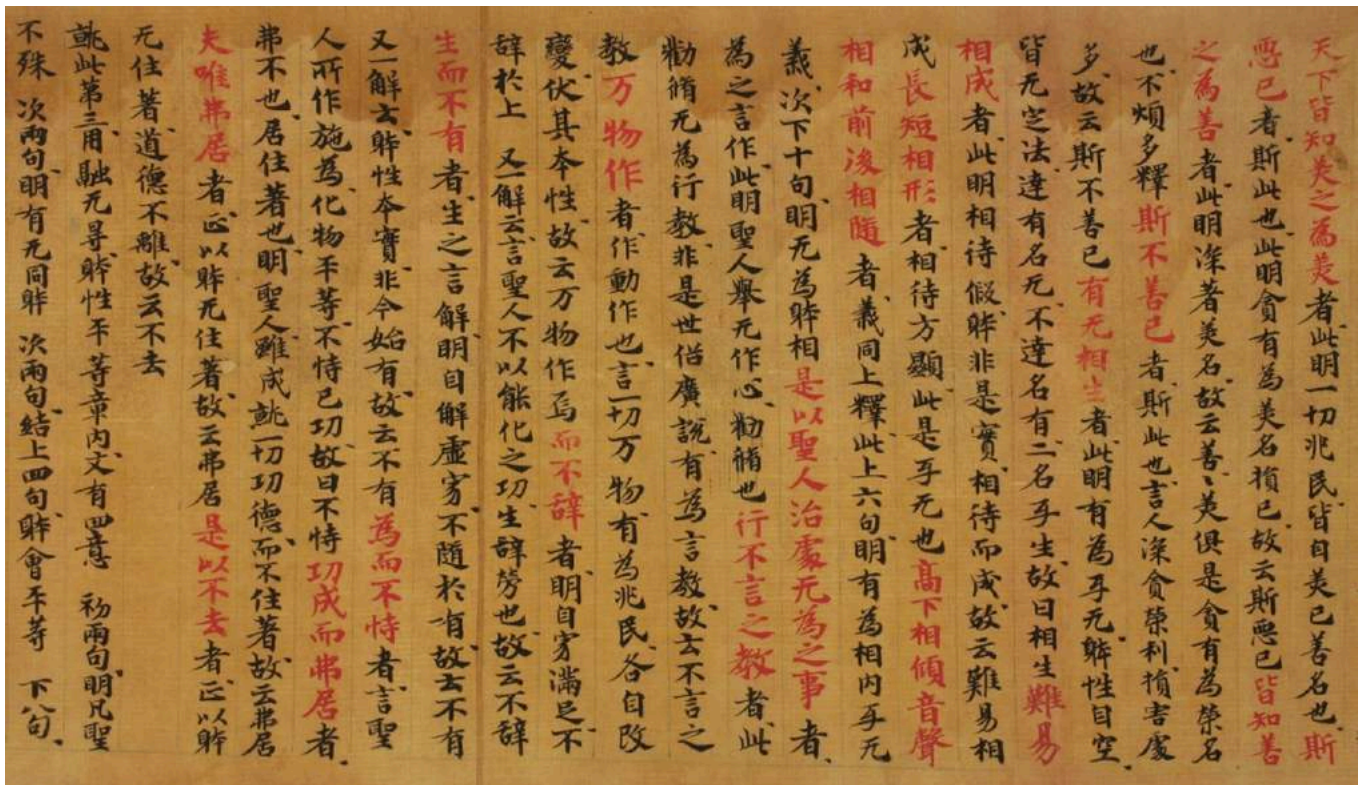 天下皆知美之為美者此明一切兆民皆自美己善名也斯
惡已者斯此也此明貪有為美名損已故云斯惡已皆知善
之為善者此明深著美名故云善〻美俱是貪有為榮名
也不煩多釋斯不善已者斯此也言人深貪榮利損害處
多故云斯不善已有无相生者此明有為㸦无躰性自空
皆无定法達有名无不達名有二名㸦生故曰相生難易
相成者此明相待假躰非是實相待而成故云難易相
成長短相形者相待方顯此是㸦无也高下相傾音聲
相和前後相隨者義同上釋此上六句明有為相内㸦无
義次下十句明无為躰相是以聖人治處无為之事者
為之言作此明聖人舉无作心勸脩也行不言之教者此
勸脩无為行教非是世俗廣說有為言教故云不言之
教万物作者作動作也言一切万物有為兆民各自改
變伏其本性故云万物作焉而不辞者明自穷滿足不
辞於上 又一解云言聖人不以能化之功生辞勞也故云不辞
生而不有者生之言解明自解虛穷不隨於有故云不有
又一解云躰性本實非今始有故云不有為而不恃者言聖
人所作施為化物平等不恃己功故曰不恃功成而弗居者
弗不也居住著也明聖人雖成就一切功德而不住著故云弗居
夫唯弗居者正以躰无住著故云弗居是以不去者正以躰
无住著道德不離故云不去
就此第三用融无㝵躰性平等章内文有四意 初兩句明凡聖
不殊 次兩句明有无同躰 次兩句結上四句躰會平等 下八句